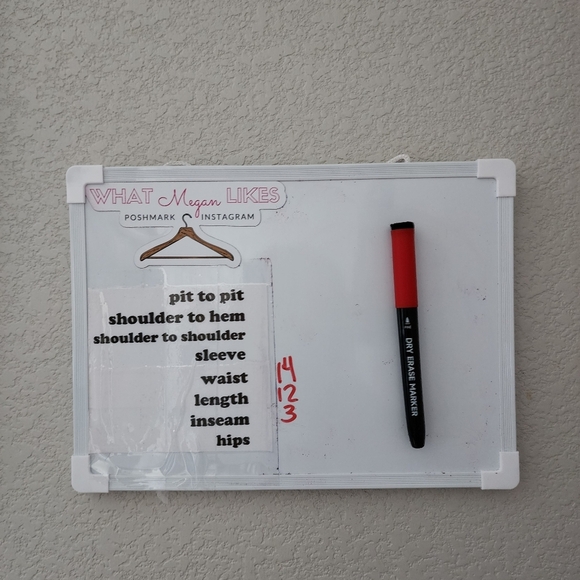 WHAT Megan LIKES
POSHMARK INSTAGRAM
pit to pit
shoulder to hem
shoulder to shoulder
sleeve
waist 14
length 12
inseam 3
hips
DRY ERASE MARKER